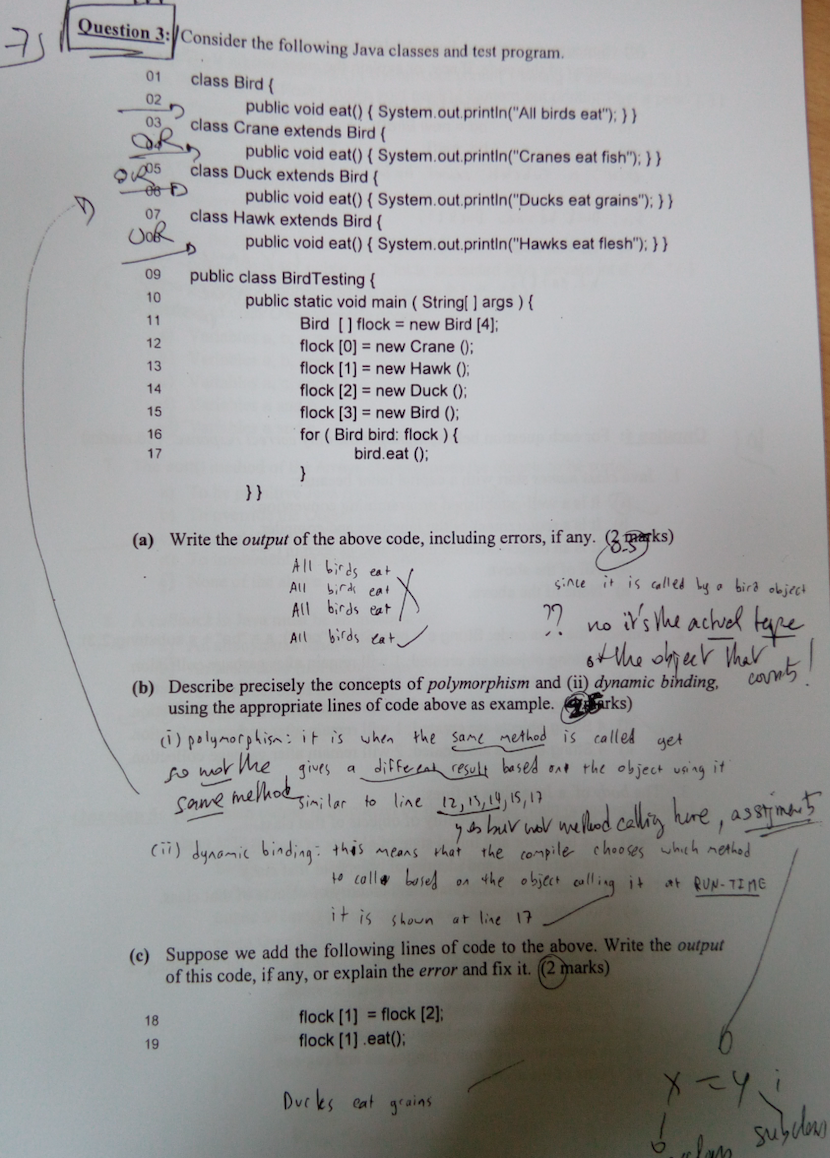 Question 3: Consider the following Java classes and test program.
01 class Bird {
02 public void eat() { System.out.println("All birds eat"); } }
03 class Crane extends Bird {
public void eat() { System.out.println("Cranes eat fish"); } }
05 class Duck extends Bird {
06 public void eat() { System.out.println("Ducks eat grains"); } }
07 class Hawk extends Bird {
public void eat() { System.out.println("Hawks eat flesh"); } }
09 public class BirdTesting {
10 public static void main ( String[ ] args ) {
11 Bird [ ] flock = new Bird [4];
12 flock [0] = new Crane ();
13 flock [1] = new Hawk ();
14 flock [2] = new Duck ();
15 flock [3] = new Bird ();
16 for ( Bird bird: flock ) {
17 bird.eat ();
}
} }
(a) Write the output of the above code, including errors, if any. (2 marks)
0.5
All birds eat
All birds eat
All birds eat
All birds eat
since it is called by a bird object
?? no it's the actual type
of the object that
counts!
(b) Describe precisely the concepts of polymorphism and (ii) dynamic binding,
using the appropriate lines of code above as example.
(i) polymorphism: it is when the same method is called get
so not the gives a different result based on the object using it
same method similar to line 12,13,14,15,17
yes but not method calling here, assignments
(ii) dynamic binding: this means that the compiler chooses which method
to call based on the object calling it at RUN-TIME
it is shown at line 17
(c) Suppose we add the following lines of code to the above. Write the output
of this code, if any, or explain the error and fix it. (2 marks)
18 flock [1] = flock [2];
19 flock [1] .eat();
Ducks eat grains
x = y ;
subclass